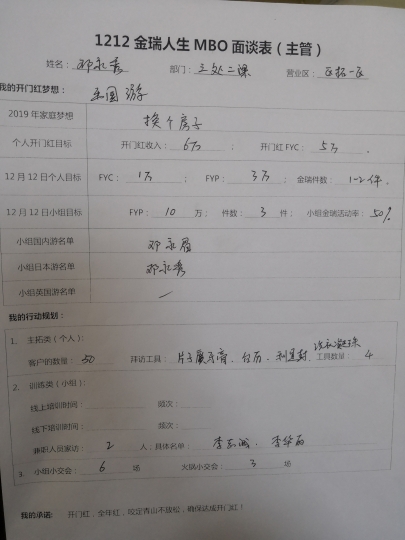 1212金瑞人生MBO面谈表（主管）
姓名：邓永秀 部门：三处二课 营业区：区拓一区
我的开门红梦想：英国游
2019年家庭梦想 换个房子
个人开门红目标 开门红收入：6万 ；开门红FYC：5万 。
12月12日个人目标 FYC：1万 ；FYP：3万 ；金瑞件数：1-2件。
12月12日小组目标 FYP：10 万；件数：3 件；小组金瑞活动率：50%
小组国内游名单 邓永
小组日本游名单 邓永秀
小组英国游名单 /
我的行动规划：
1. 主拓类（个人）：
客户的数量：50 拜访工具：片子 牙膏、台历、利是封、洗衣凝珠 工具数量 4
2. 训练类（小组）：
线上培训时间： 频次：
线下培训时间： 频次：
兼职人员家访：2 人，具体名单：李 、李华
3. 小组小交会：6 场 火锅小交会：3 场
我的承诺： 开门红，全年红，咬定青山不放松，确保达成开门红！